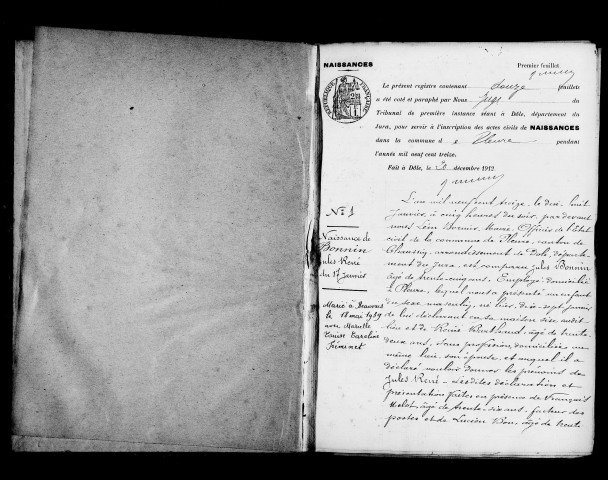 NAISSANCES
Premier feuillet.
Le présent registre contenant douze feuillets
a été coté et paraphé par Nous Juge du
Tribunal de première instance séant à Dôle, département du
Jura, pour servir à l'inscription des actes civils de NAISSANCES
dans la commune de Pleure pendant
l'année mil neuf cent treize.
Fait à Dôle, le décembre 1912.
RÉPUBLIQUE FRANÇAISE
N° 1
Naissance de
Bonnin
Jules René
du 17 Janvier
Marié à Beauvais
le 18 mai 1939
avec
Louise
L'an mil neuf cent treize, le dix huit
Janvier, à cinq heures du soir, par devant
nous Léon Maire, Officier de l'État
civil de la commune de Pleure, canton de
Chaussin, arrondissement de Dole, départe-
ment du Jura, est comparu Jules Bonnin
âgé de trente cinq ans, Employé, domicilié
à Pleure, lequel nous a présenté un enfant
du sexe masculin, né hier, dix-sept janvier
de lui déclarant en sa maison sise audit
lieu et de âgée de trente
deux ans, Sans profession, domiciliée au
même lieu, son épouse, et auquel il a
déclaré vouloir donner les prénoms de
Jules René. Lesdites déclaration et
présentation faites en présence de François
âgé de trente-six ans, facteur des
postes et de Lucien âgé de trente